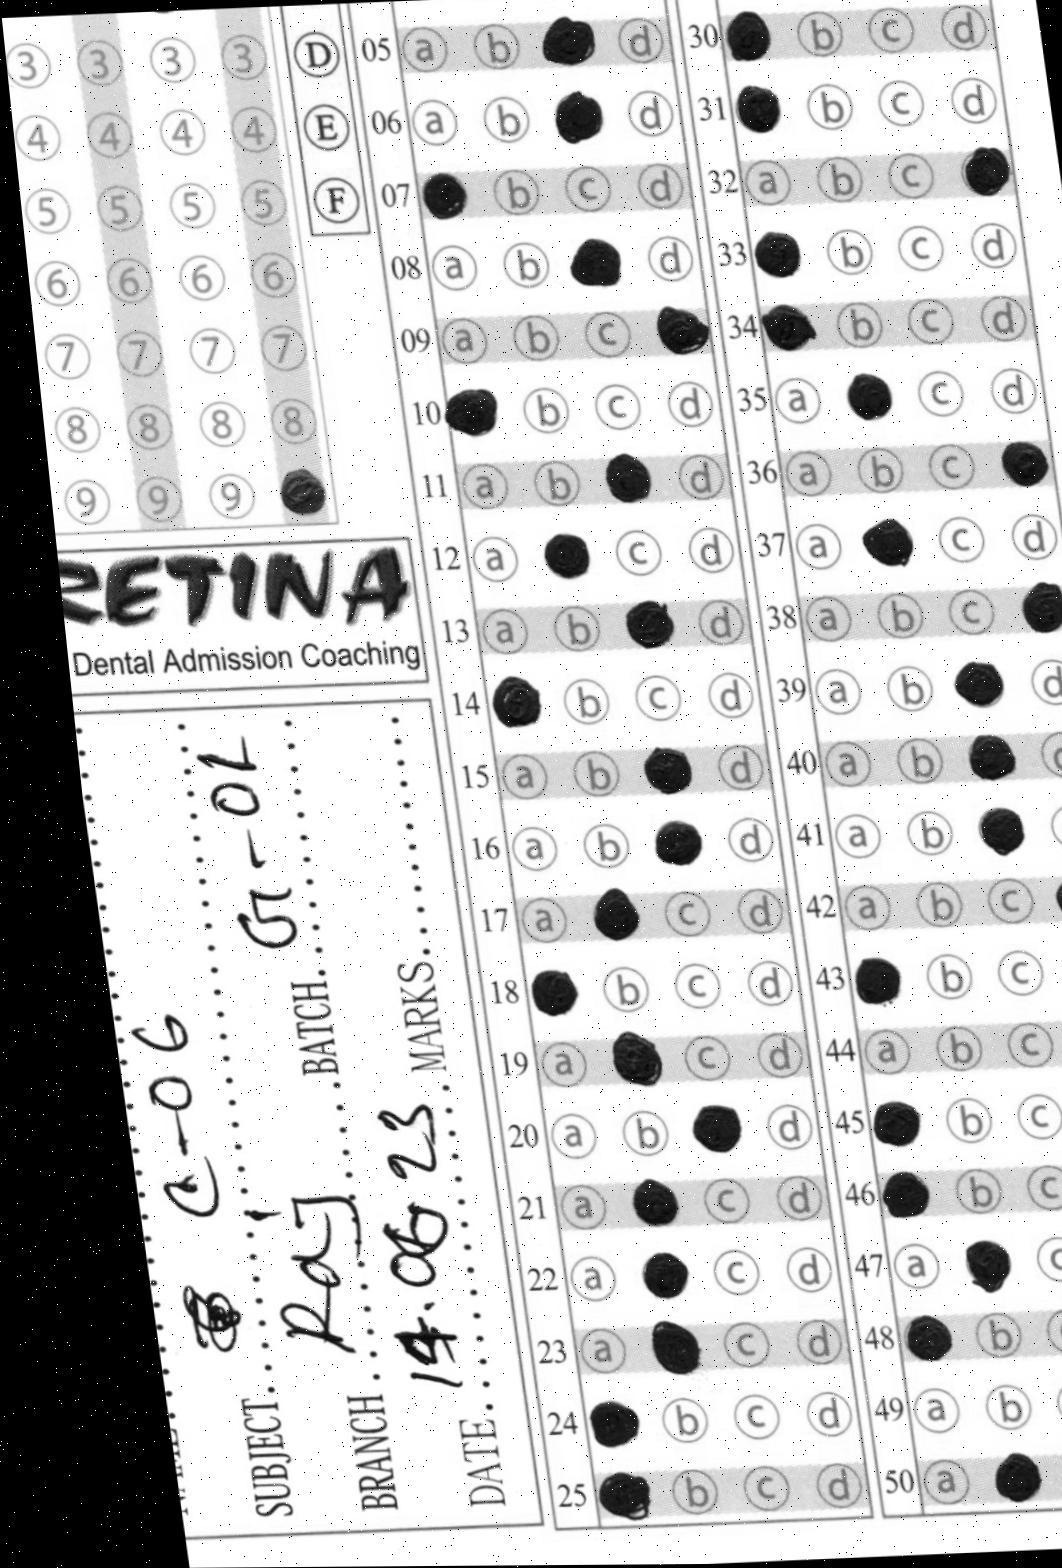 3 3 3 3 D
4 4 4 4 E
5 5 5 5 F
6 6 6 6
7 7 7 7
8 8 8 8
9 9 9
RETINA
Dental Admission Coaching
C-06
SUBJECT
BATCH
BRANCH
MARKS
DATE 14.06.23
05 a b d
06 a b d
07 b c d
08 a b d
09 a b c
10 b c d
11 a b d
12 a c d
13 a b d
14 b c d
15 a b d
16 a b d
17 a c d
18 b c d
19 a c d
20 a b d
21 a c d
22 a c d
23 a c d
24 b c d
25 b c d
30 b c d
31 b c d
32 a b c
33 b c d
34 b c d
35 a c d
36 a b c
37 a c d
38 a b c
39 a b d
40 a b
41 a b
42 a b c
43 b c
44 a b c
45 b c
46 b c
47 a c
48 b
49 a b
50 a